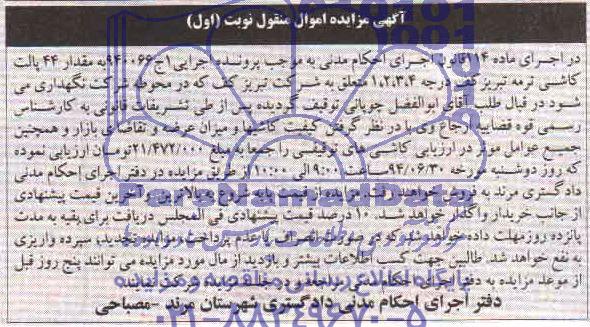 آگهی مزایده اموال منقول نوبت (اول)
در اجرای ماده ۱۱۴قانون اجرای احکام مدنی به موجب پرونده اجرایی۱ج۹۴۰۰۶۶به مقدار ۴۴ پالت
کاشی ترمه تبریزکف درجه ۱،۲،۳،۴ متعلق به شرکت تبریز کف که در محوطه شرکت نگهداری می
شود در قبال طلب آقای ابوالفضل چوپانی توقیف گردیده پس از طی تشریفات قانونی به کارشناس
رسمی قوه قضاییه ارجاع وی با در نظر گرفتن کیفیت کاشیها و میزان عرضه و تقاضای بازار و همچنین
جمیع عوامل موثر در ارزیابی کاشی های توقیفی را جمعا به مبلغ ۲۱/۴۷۲/۰۰۰تومان ارزیابی نموده
که روز دوشنبه مورخه ۹۴/۰۶/۳۰ساعت ۹:۰۰الی ۱۰:۰۰ از طریق مزایده در دفتر اجرای احکام مدنی
دادگستری مرند به فروش خواهد رفت مزایده از قیمت پایه شروع به بالاترین و آخرین قیمت پیشنهادی
از جانب خریدار واگذار خواهد شد. ۱۰ درصد قیمت پیشنهادی فی المجلس دریافت برای بقیه به مدت
پانزده روزمهلت داده خواهد شد که در صورت انصراف یا عدم پرداخت، مزایده تجدید، سپرده واریزی
به نفع خواهد شد. طالبین جهت کسب اطلاعات بیشتر و بازدید از مال مورد مزایده می توانند پنج روز قبل
از موعد مزایده به دفتر اجرای احکام مدنی مراجعه و در جلسه مزایده شرکت نمایند
دفتر اجرای احکام مدنی دادگستری شهرستان مرند -مصباحی
ParsNamadData
پایگاه اطلاع رسانی مناقصه و مزایده
۰۲۱-۸۸۳۴۹۶۷۰-۵